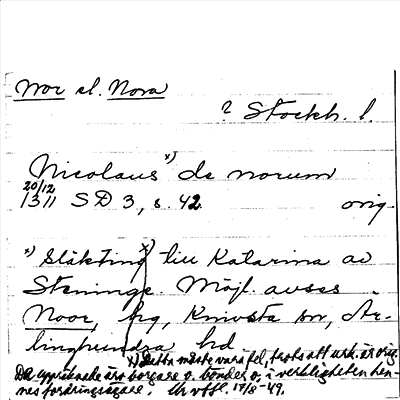 Nor el. Nora
? Stockh. l.
Nicolaus x) de norum
20/12
1311 SD 3, s. 42 orig.
x) Släkting x) till Katarina av
Steninge. Möjl. avses
Noor, hg, Knivsta sn, Är-
linghundra hd
x) Detta måste vara fel, trots att urk. är orig.
De uppräknade äro borgare o. bönder o. i verkligheten hen-
nes fordringsägare. 17/8 -49.